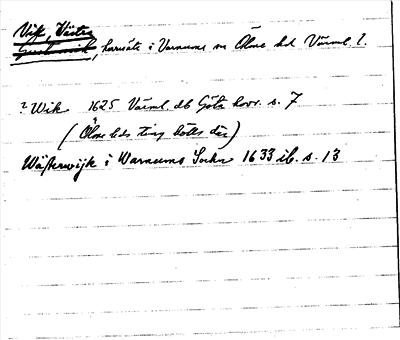 Vik, Västra
, herrsäte i Varnums sn Ölme hd Värml. l.
? Wik 1625 Värml. db Göta hovr. s. 7
(Ölme hds ting hölls där)
Wästerwijk i Warnums Sochn 1633 ib. s. 13